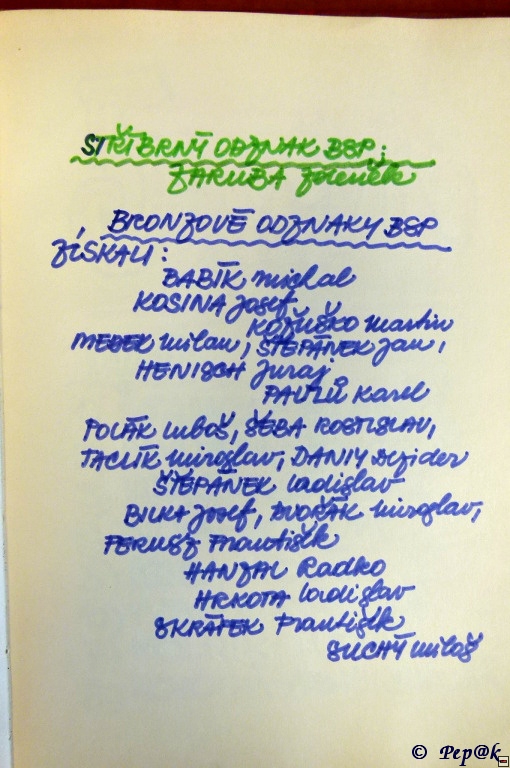 STŘÍBRNÝ ODZNAK BSP:
ZÁRUBA Zdeněk
BRONZOVÉ ODZNAKY BSP
ZÍSKALI:
BABÍK michal
KOSINA Josef
KOŽUŠKO martin
MEDEK milan, ŠTEPÁNEK Jan,
HENISCH Juraj
PAVLŮ Karel
POLÁK Luboš, ŠEBA ROSTISLAV,
TACLÍK miroslav, DANIY Dezider
ŠTEPÁNEK ladislav
BILKA Josef, DVOŘÁK miroslav,
PERUSZ František
HANZAL Radko
HRKOTA ladislav
SKRÁTEK František
SUCHÝ miloš
© Pep@k